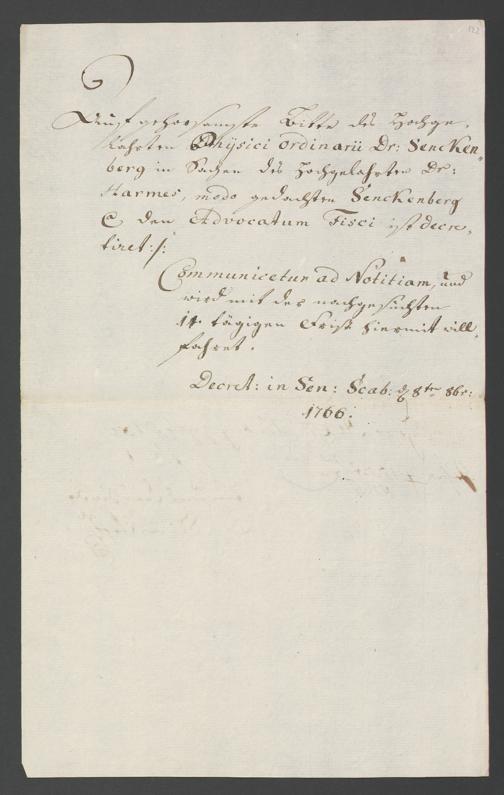 122
Auf gehorsamste Bitte des Hochge-
lahrten Physici ordinarii Dr: Sencken-
berg in Sachen des Hochgelahrten Dr:
Harmes, modo gedachten Senckenberg
C den Advocatum Fisci ist decre-
tiret:/:
Communicetur ad Notitiam, und
wird mit der nachgesuchten
14. tägigen Frist hiermit will-
fahret.
Decret: in Sen: Scab: d 8ten 8br:
1766.